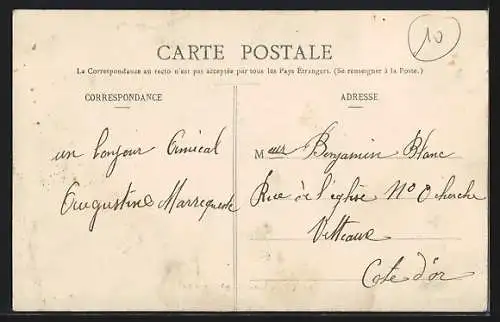 10
CARTE POSTALE
La Correspondance au recto n'est pas acceptée par tous les Pays Etrangers. (Se renseigner à la Poste.)
CORRESPONDANCE
un bonjour Amical
Augustine
ADRESSE
M Benjamin Blanc
Rue de l'église No
Vitteaux
Cote d'or